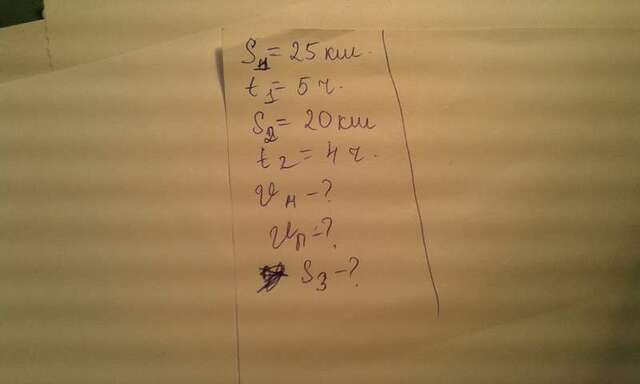 S₁ = 25 км.
t₁ = 5 ч.
S₂ = 20 км
t₂ = 4 ч.
υм – ?
υп – ?
S₃ – ?